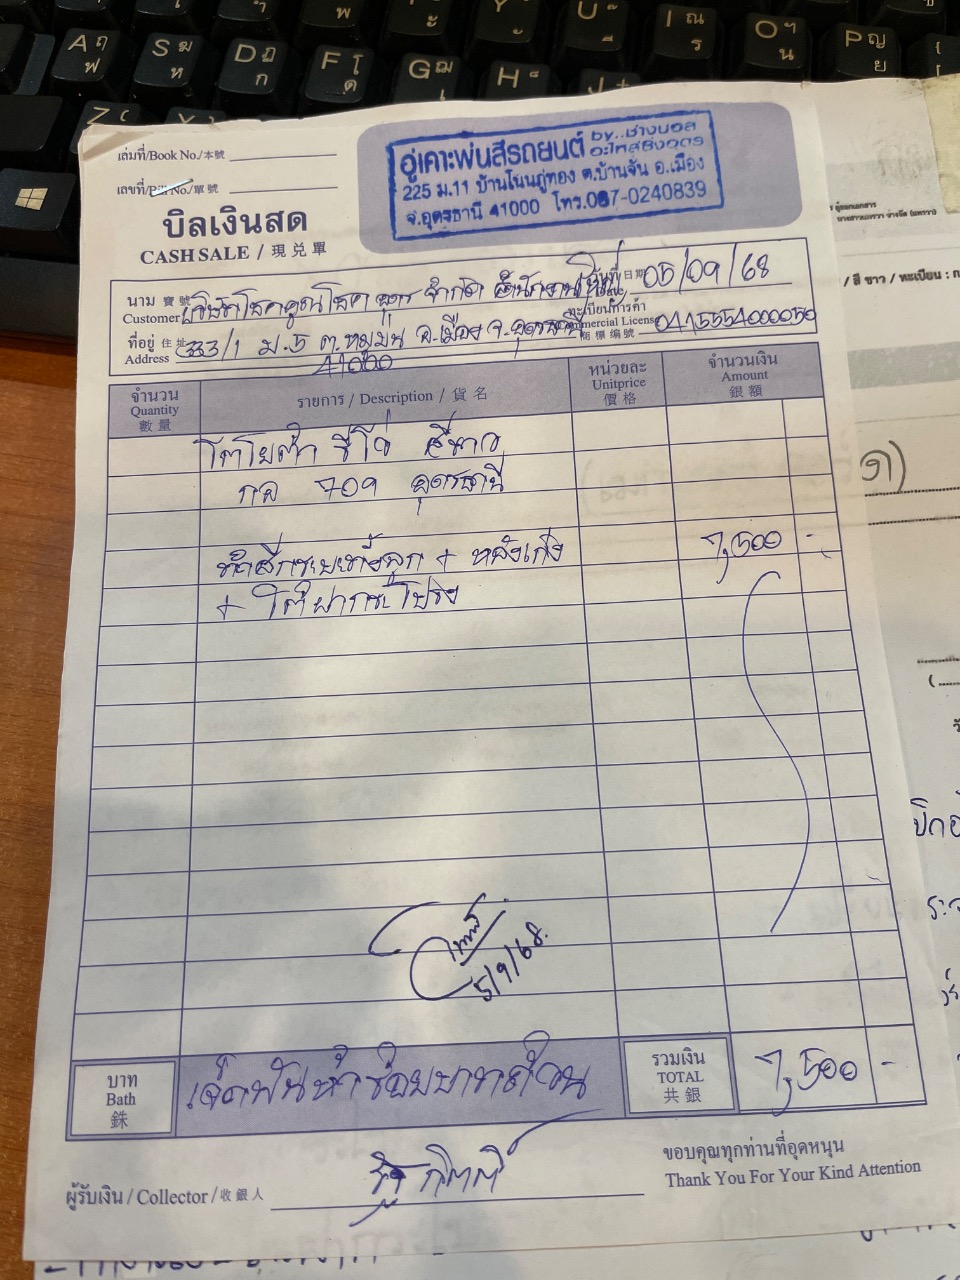 A ฤ ฟ
S ฆ ห
D ฏ ก
F โ ด
G ฌ เ
H
J
U
I ณ ร
O ฯ น
P ญ ย
เล่มที่/Book No./本號
เลขที่/Bill No./單號
บิลเงินสด
CASH SALE / 現兑單
อู่เคาะพ่นสีรถยนต์ by..ช่างบอล
อะไหล่ซิ่งอุดร
225 ม.11 บ้านโนนภู่ทอง ต.บ้านจั่น อ.เมือง
จ.อุดรธานี 41000 โทร.087-0240839
นาม 寶號
Customer จำกัด สำนักงานใหญ่
วันที่ 日期 05/09/68
ที่อยู่ 住址
Address 333/1 ม.5 ต.หมูม่น อ.เมือง จ.อุดรธานี
41000
ทะเบียนการค้า
Commercial License 0415554000050
商標編號
จำนวน
Quantity
數量
รายการ / Description / 貨名
หน่วยละ
Unitprice
價格
จำนวนเงิน
Amount
銀額
โตโยต้า รีโว่ สีขาว
709 อุดรธานี
+ หลังเก๋ง 7,500 -
+ โป่ง
5/9/68.
บาท
Bath
銖
เจ็ดพันห้าร้อยบาทถ้วน
รวมเงิน
TOTAL
共銀
7,500 -
ผู้รับเงิน / Collector / 收銀人
ขอบคุณทุกท่านที่อุดหนุน
Thank You For Your Kind Attention
/ สี ขาว / ทะเบียน : ก